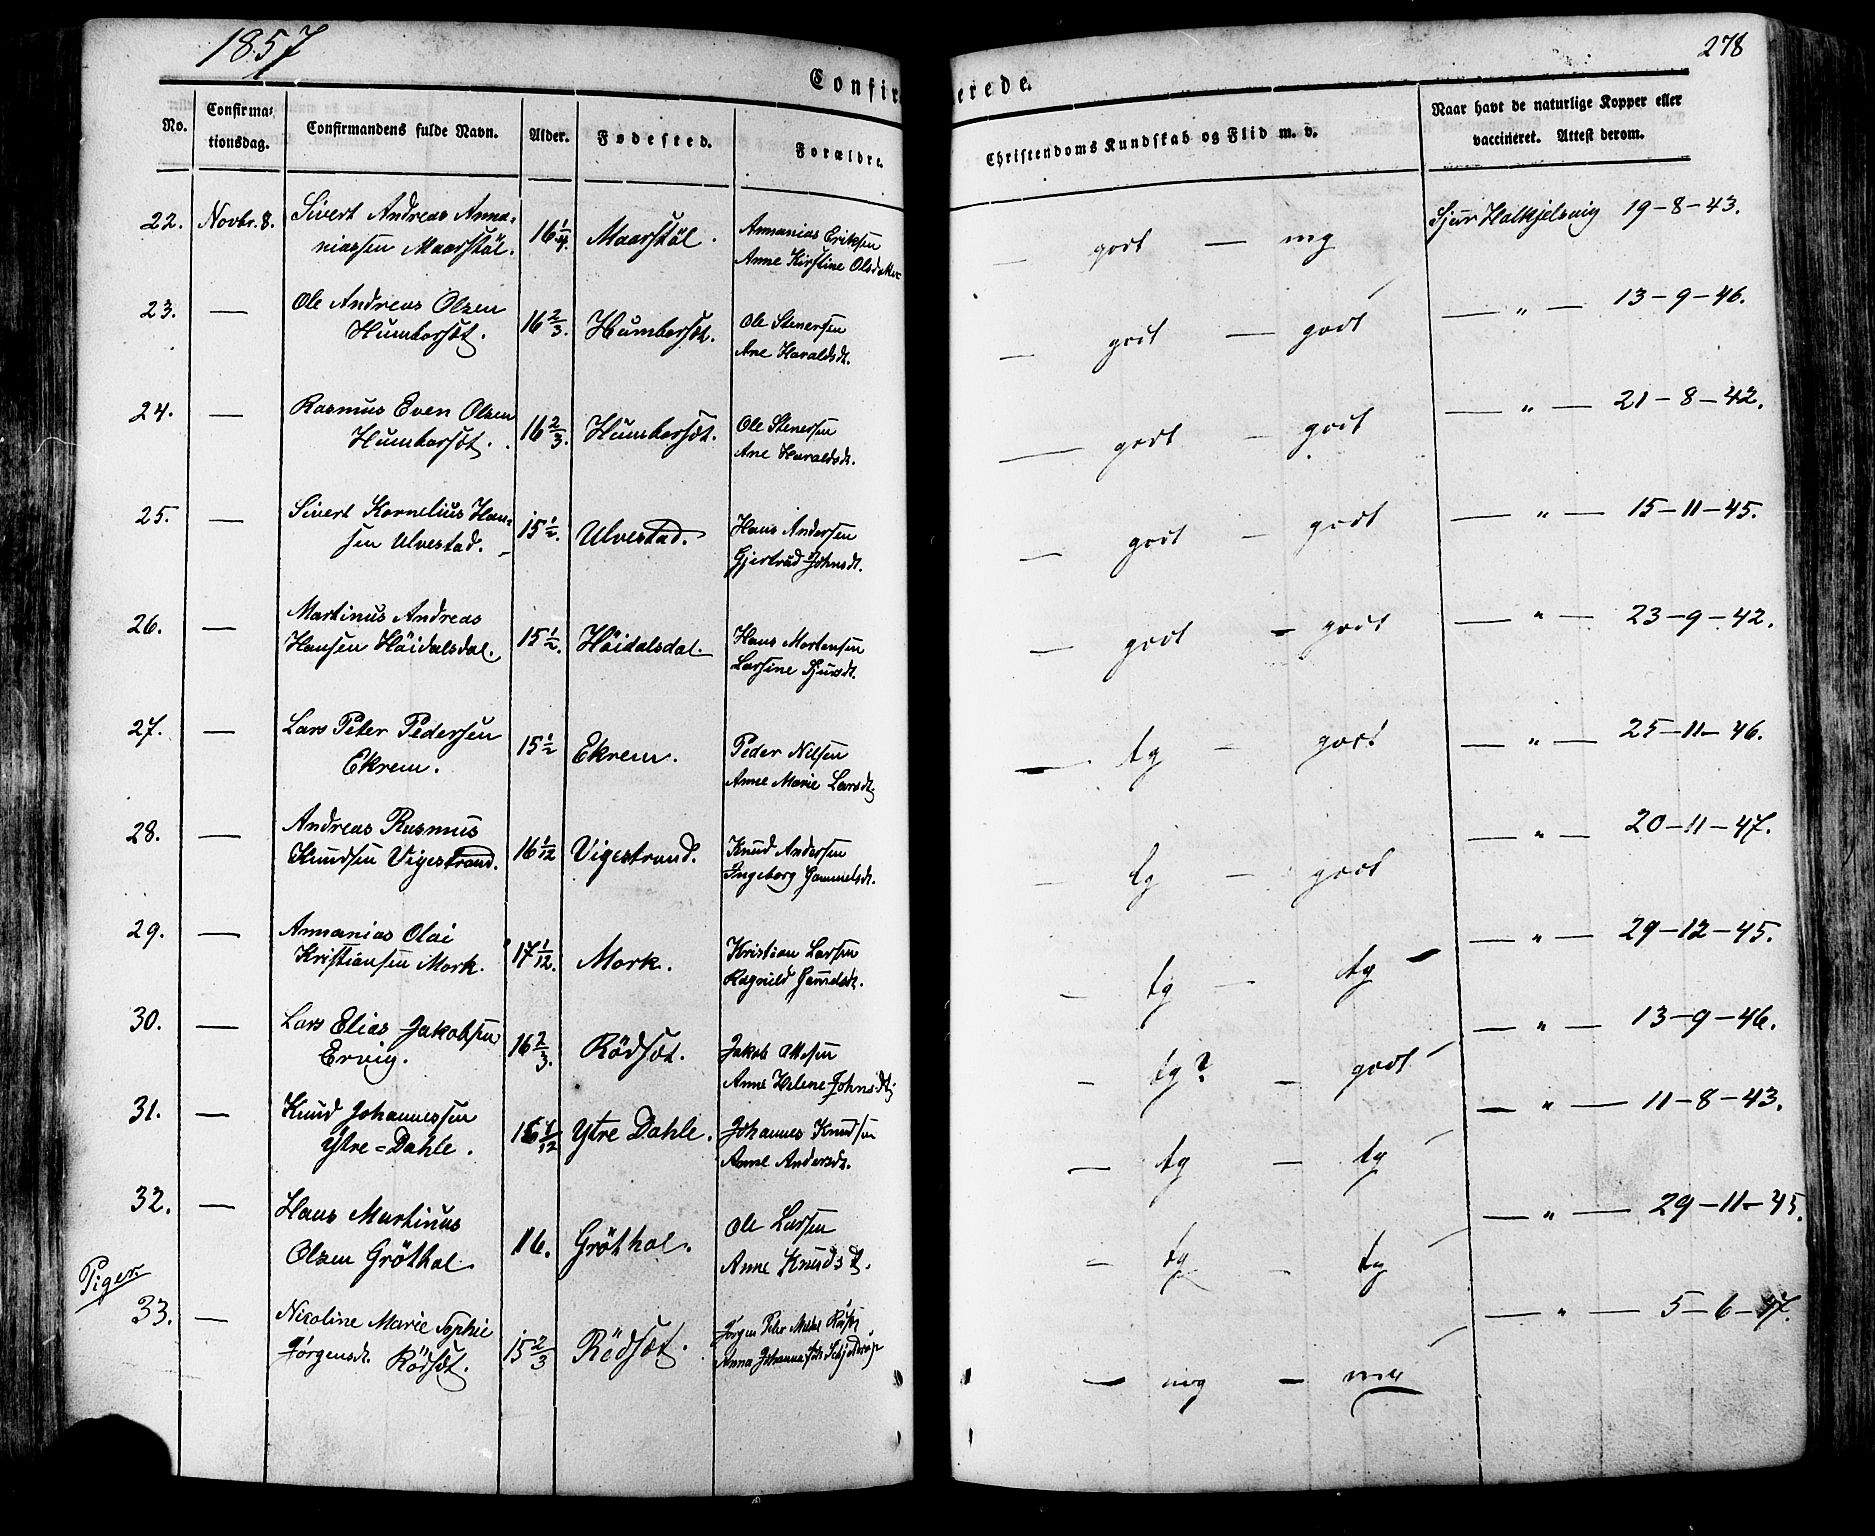 1857
278
Confirmerede.
No.
Confirma-
tionsdag.
Confirmandens fulde Navn.
Alder.
Fødested.
Forældre.
Christendoms Kundskab og Flid m. v.
Naar havt de naturlige Kopper eller
vaccineret. Attest derom.
22. Novbr. 8. Sivert Andreas Anna-
niassen Maarstöl. 16 1/4. Maarstöl. Annanias Eriksen
Anne Kirstine Olsdatter
— godt — mg Sjur Halkjelsvig 19-8-43.
23. — Ole Andreas Olsen
Humborsæt. 16 2/3. Humborsæt. Ole Stenersen
Ane Haraldsdt.
— godt — godt — " — 13-9-46.
24. — Rasmus Even Olsen
Humborsæt. 16 2/3. Humborsæt. Ole Stenersen
Ane Haraldsdt.
— godt — godt — " — 21-8-42.
25. — Sivert Kornelius Han-
sen Ulvestad. 15 1/2. Ulvestad. Hans Andersen
Gjertrud Johnsdt.
— godt — godt — " — 15-11-45.
26. — Martinus Andreas
Hansen Höidalsdal. 15 1/2. Höidalsdal. Hans Mortensen
Larsine Sjursdt.
— godt — godt — " — 23-9-42.
27. — Lars Peter Pedersen
Ekrem. 15 1/2 Ekrem. Peder Nilsen
Anne Marie Larsdt
— tg — godt — " — 25-11-46.
28. — Andreas Rasmus
Knudsen Vigestrand. 16 1/12 Vigestrand. Knud Andersen
Ingeborg Gammelsdt.
— tg — godt — " — 20-11-47.
29. — Annanias Olai
Kristiansen Mork. 17 1/12. Mork. Kristian Larsen
Ragnild Gamelsdt.
— tg — tg — " — 29-12-45.
30. — Lars Elias Jakobsen
Ervig. 16 2/3. Rödsæt. Jakob Ottesen
Anne Helene Johnsdt
— tg? — godt — " — 13-9-46.
31. — Knud Johannessen
Ytre-Dahle. Ytre Dahle. Johannes Knudsen
Anne Andersdt.
— tg — tg — " — 11-8-43.
32. — Hans Martinus
Olsen Gröthol. 16. Gröthol. Ole Larsen
Anne Knudsdt.
— tg — tg — " — 29-11-45.
Piger.
33. — Nicoline Marie Sophie
Jørgensdt. Rödsæt. 15 2/3 Rödsæt. Jörgen Peter
Anna Johanna
— mg — " — 5-6-47.